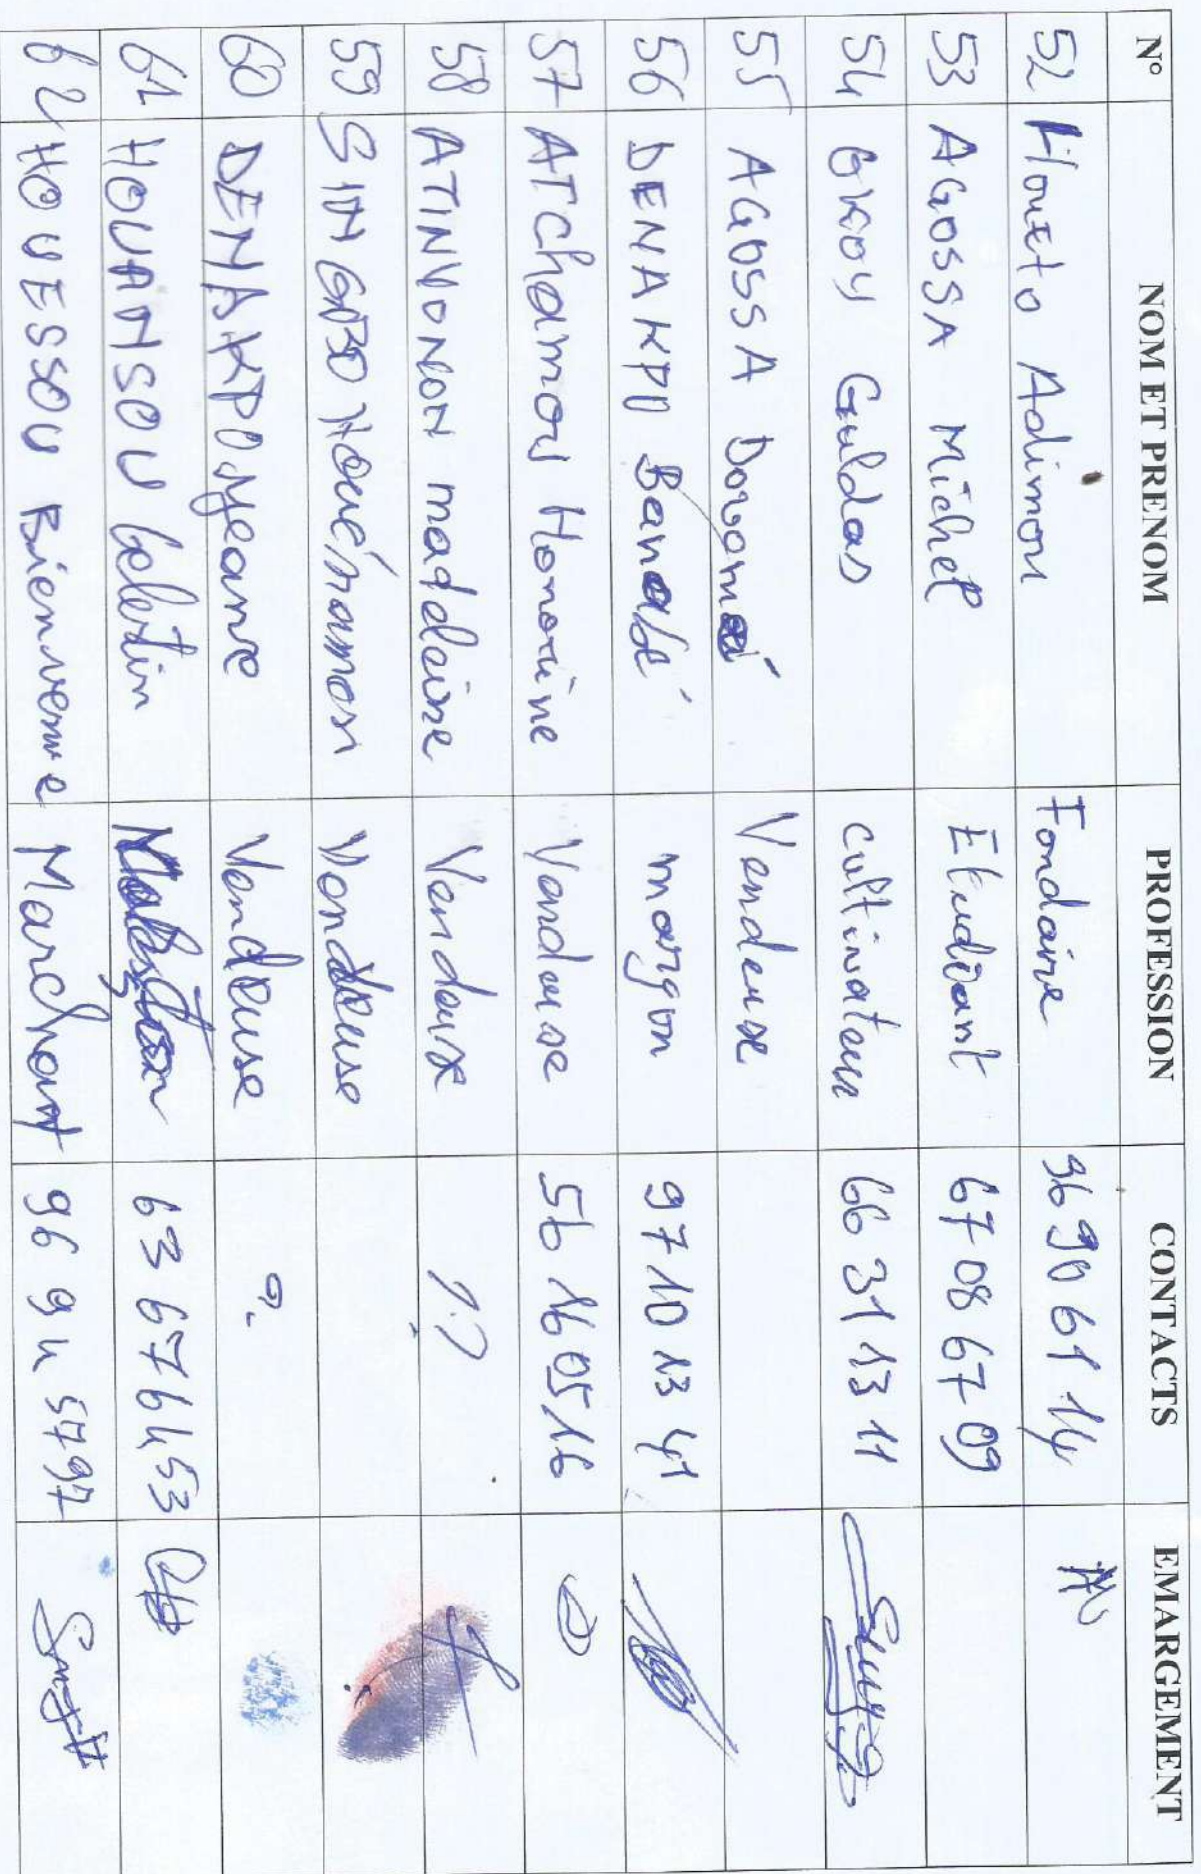 N° NOM ET PRENOM PROFESSION CONTACTS EMARGEMENT
52 Houeto Adimou Fondaire 96 90 61 14
53 AGOSSA Michel Etudiant 67 08 67 09
54 GKOY Guldas cultivateur 66 31 13 11
55 AGOSSA Vendeuse
56 DENAKPO maçon 97 10 13 41
57 ATChamou Honorine Vendeuse 56 16 05 16
58 ATINVONON madeleine Vendeuse
59 SINGBO Houénamon Vendeuse
60 DENAKPO Jeanne Vendeuse ?
61 HOUANSOU Celestin 63 67 64 53
62 HOUESSOU Bienvenue Marchant 96 94 57 97